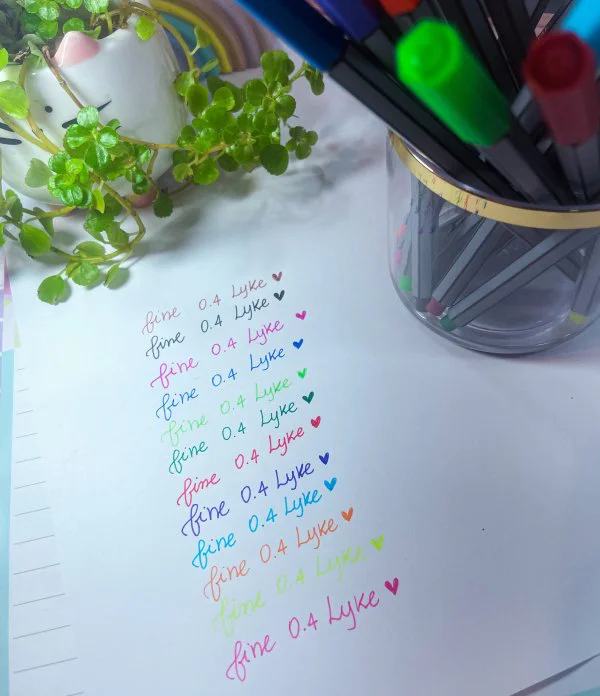 fine 0.4 Lyke ♥
fine 0.4 Lyke ♥
fine 0.4 Lyke ♥
fine 0.4 Lyke ♥
fine 0.4 Lyke ♥
fine 0.4 Lyke ♥
fine 0.4 Lyke ♥
fine 0.4 Lyke ♥
fine 0.4 Lyke ♥
fine 0.4 Lyke ♥
fine 0.4 Lyke ♥
fine 0.4 Lyke ♥